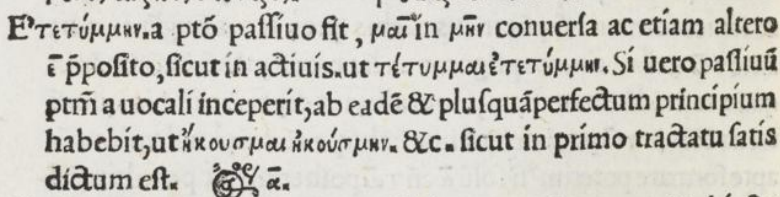 Ε᾽τετύμμην.a ptō paſſiuo fit, μαι in μην conuerſa ac etiam altero
ε̄ p̄poſito, ſicut in actiuis.ut τέτυμμαι ἐτετύμμην. Si uero paſſiuū
ptm̄ a uocali inceperit, ab eadē & pluſquāperfectum principium
habebit, ut ἤκουσμαι ἠκούσμην. &c. ſicut in primo tractatu ſatis
dictum eſt. ᾱ.